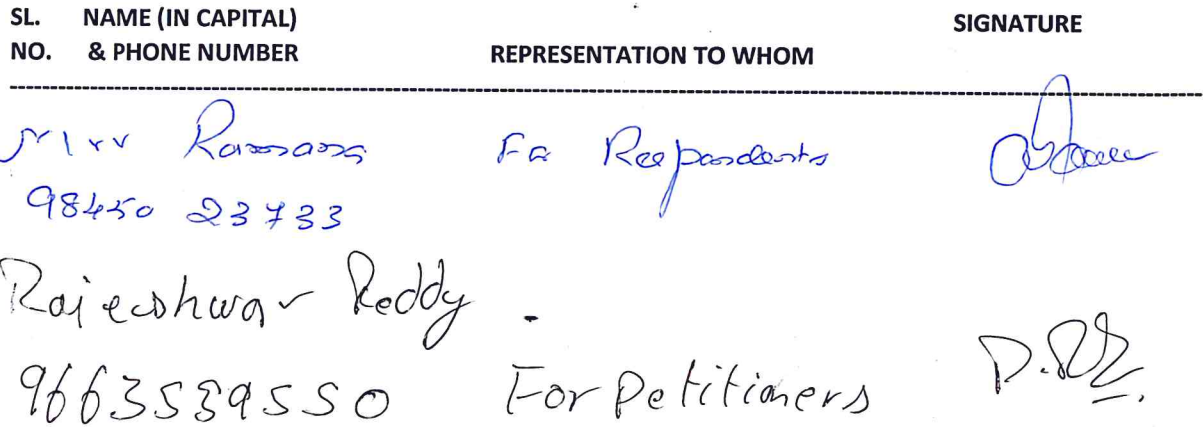 SL. NAME (IN CAPITAL) SIGNATURE
NO. & PHONE NUMBER REPRESENTATION TO WHOM
Ramana For Respondents
98450 23733
Rajeshwar Reddy .
9663539550 For Petitioners